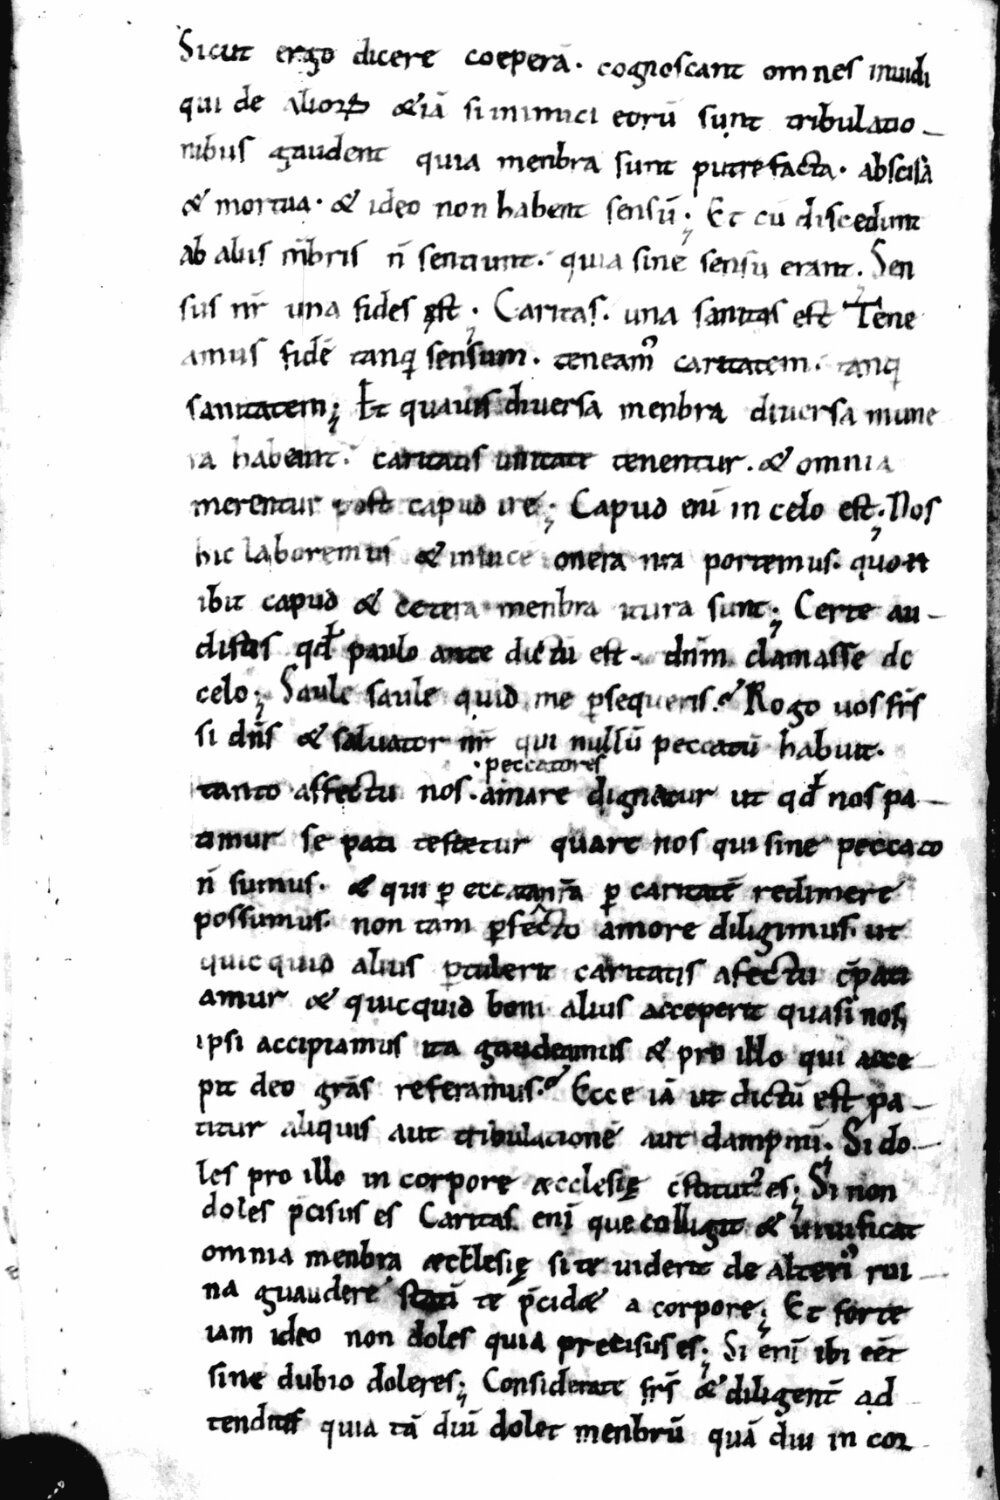 Sicut ergo dicere coeperā. cognoscant omnes inuidi
qui de alioꝝ &iā si inimici eorū sunt tribulatio
nibus gaudent quia menbra sunt putrefacta. abscisa
& mortua. & ideo non habent sensū; Et cū discedunt
ab aliis mbris ñ sentiunt. quia sine sensu erant. Sen
sus nr̄ una fides est; Caritas. una sanitas est Tene
amus fidē tanq sensum. teneam᾽ caritatem. tanq
sanitatem; Et quauis diuersa menbra diuersa mune
ra habeant. caritatis unitate tenentur. & omnia
merentur post capud ire; Capud eni in celo est; Nos
hic laboremus & inuicē onera nr̄a portemus. quo
ibit capud & cetera menbra itura sunt; Certe au
distis qd paulo ante dictū est. dnm clamasse de
celo; Saule saule quid me ꝑsequeris. Rogo uos frs̄
si dns̄ & saluator nr̄ qui nullū peccatū habuit.
peccatores
tanto affectu nos. amare dignetur ut qd nos pa
timur se pati testetur quare nos qui sine peccato
ñ sumus. & qui ꝑ caritatē redimere
possumus. non tam ꝑfecto amore diligimus. ut
quicquid alius ꝑtulerit caritatis afectu c̄pati
amur & quicquid boni alius acceperit quasi nos
ipsi accipiamus ita gaudeamus & pro illo qui acce
pit deo grās referamus. Ecce iā ut dictū est pa
titur aliquis aut tribulationē aut dampnū. Si do
les pro illo in corpore æcclesię c̄stitut᾽ es; Si non
doles p̄cisus es Caritas enī que colligit & uiuificat
omnia menbra æcclesię si te uiderit de alteri᾽ rui
na guaudere statī te p̄cid& a corpore; Et forte
iam ideo non doles quia precisus es; Si enī ibi eēt
sine dubio doleres; Considerate frs̄ & diligent̄ ad
tendite quia tā diū dolet menbrū quā diu in cor